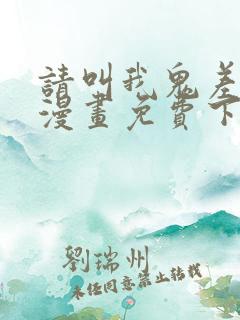 請叫我鬼差
漫畫免費下
劉瑞州
未經同意禁止轉載